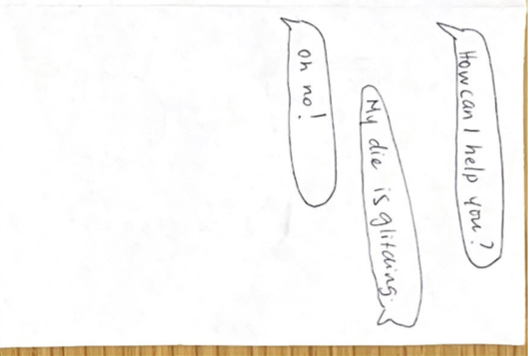 How can I help you?
My die is glitching.
oh no!